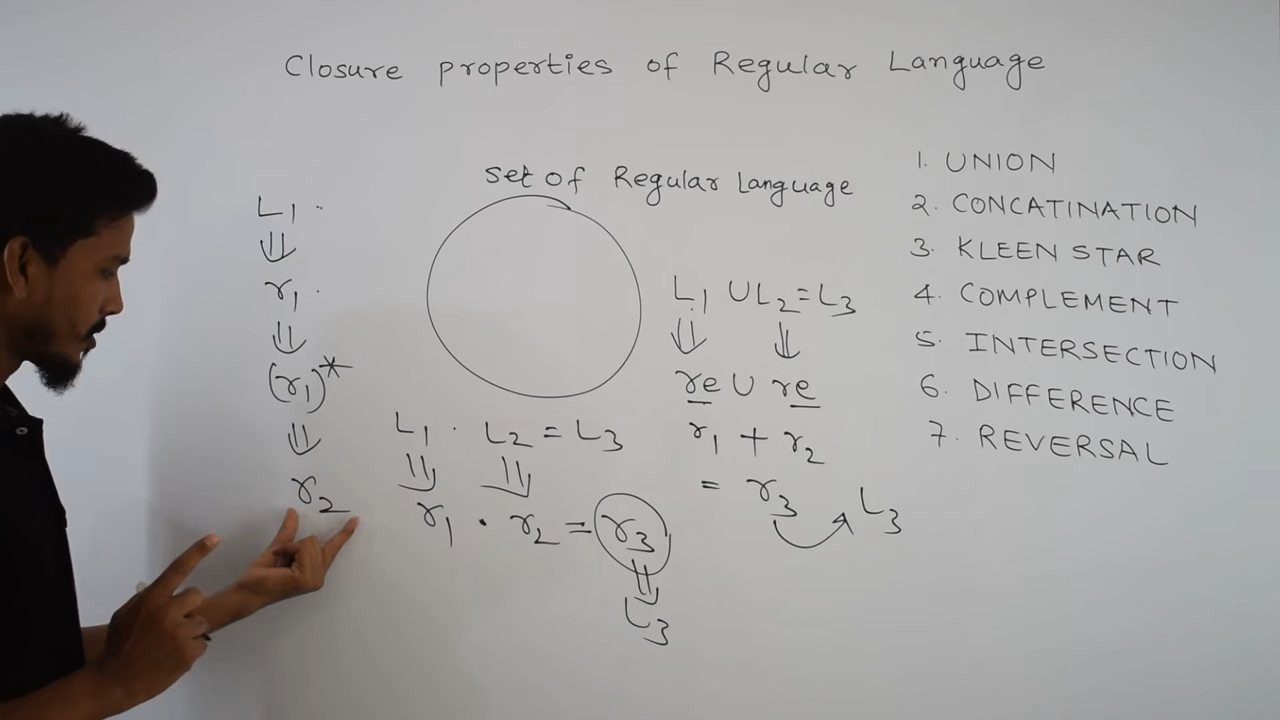 Closure properties of Regular Language
Set of Regular Language
L1 .
⇓
r1 .
⇓
(r1)*
⇓
r2
L1 . L2 = L3
⇓ ⇓
r1 . r2 = r3
⇓
L3
L1 ∪ L2 = L3
⇓ ⇓
re ∪ re
r1 + r2
= r3 → L3
1. UNION
2. CONCATINATION
3. KLEEN STAR
4. COMPLEMENT
5. INTERSECTION
6. DIFFERENCE
7. REVERSAL